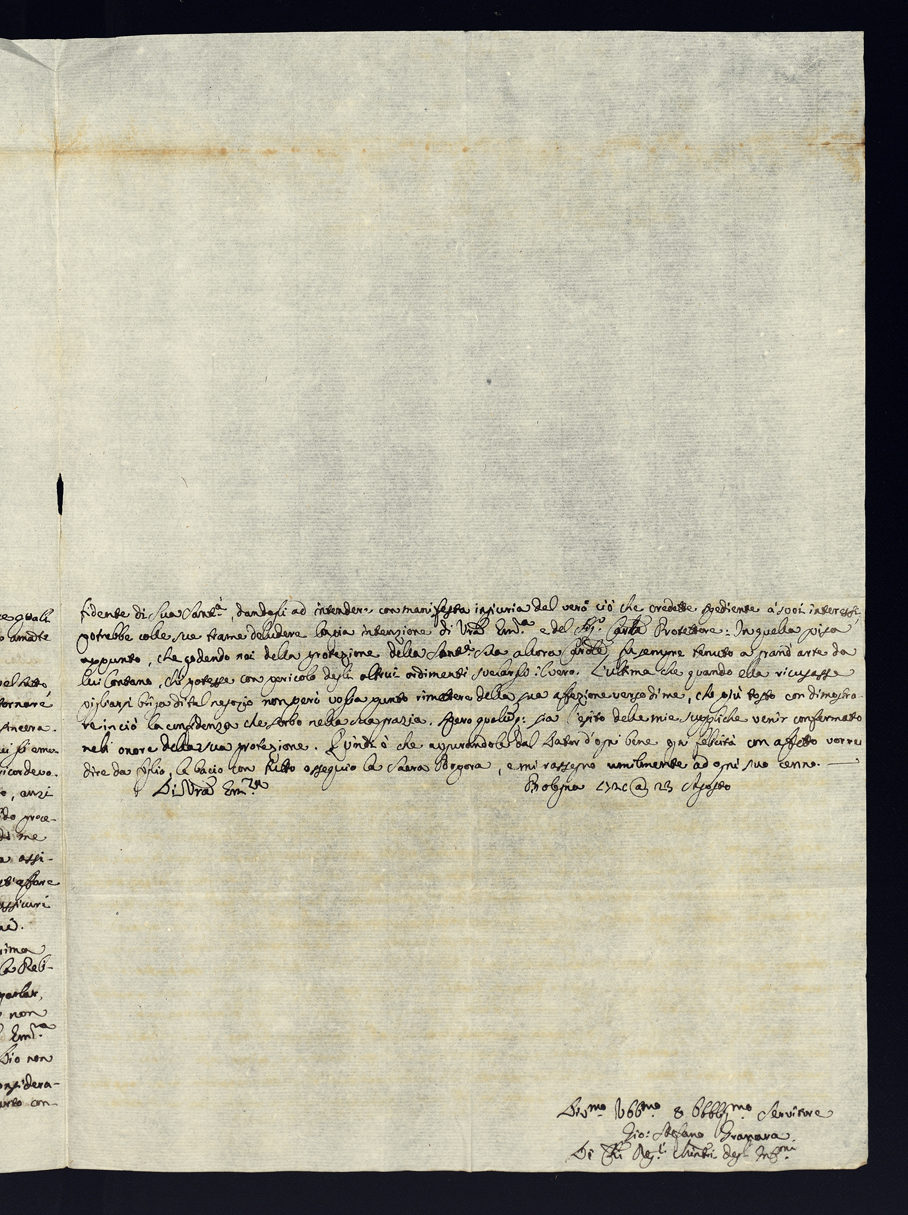 fidente di Sua Sant.à, dandogli ad intendere con manifesta ingiuria del vero ciò che credette spediente a' suoi interessi,
potrebbe colle sue trame deludere la pia intenzione di Vra Em.za e del Protettore: In quella guisa
appunto, che godendo noi della protezione della Sant.tà Sua allora fù sempre tenuto a grand'arte da
lui lontano, chi potesse con pericolo degli altrui ordimenti svelargli il vero. L'ultima che quando ella ricusasse
pigliarsi briga di tal negozio non però voglia punto rimettere della sua affezione verso di me, che più tosto condimostra-
re in ciò la confidenza che serbo nella sua grazia. Spero qualunq: sia l'esito delle mie suppliche venir confermato
nell'onore della sua protezione. Quindi è che augurandole dal Dator d'ogni bene ogni felicità con affetto vorrei
dire da figlio, le bacio con tutto ossequio la Sacra Porpora, e mi rassegno umilmente ad ogni suo cenno.
Di Vra Em.za Bologna 23 Agosto
Div.mo Obb.mo & Obblig.mo Servitore
Gio: Stefano Granara
De Ch. Reg.i Ministri degl'Inf.mi